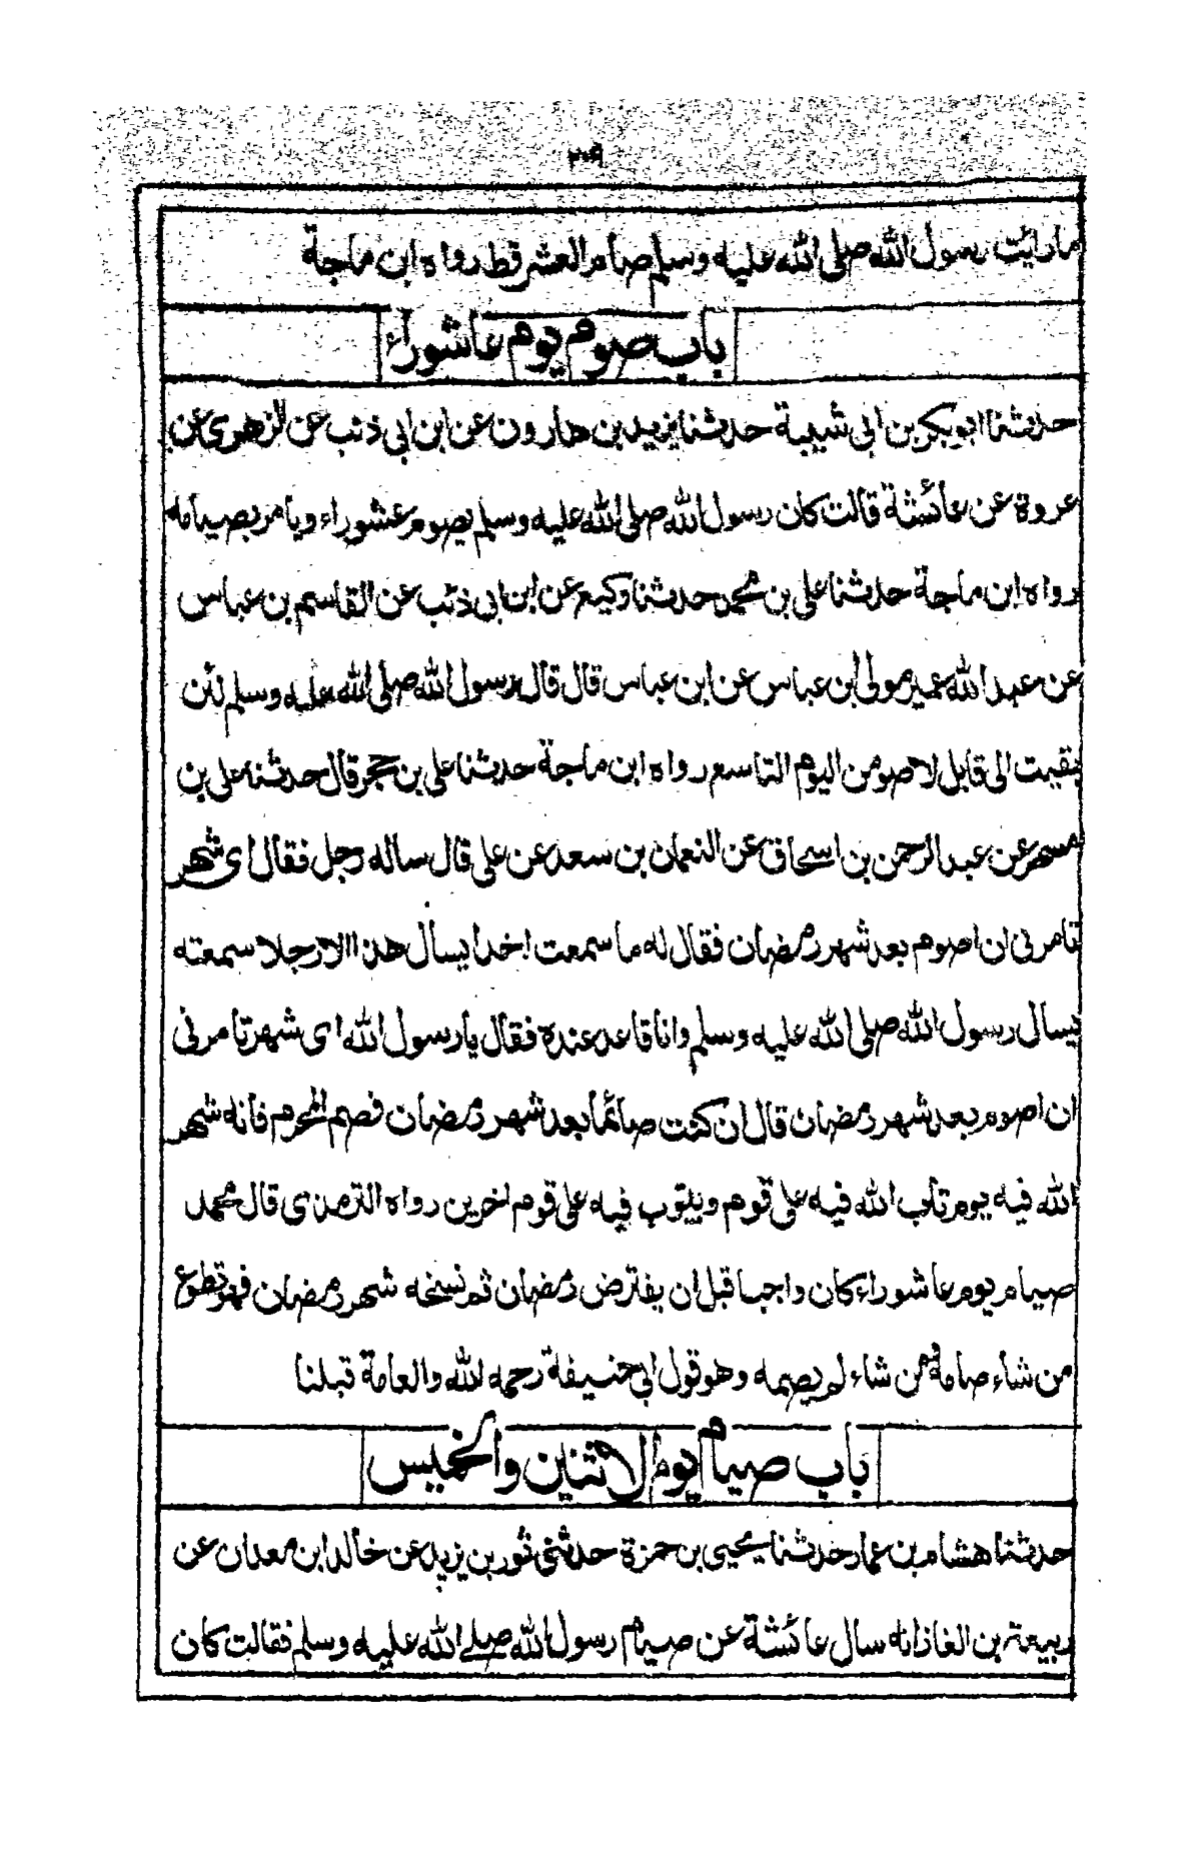 ۲۰۹
ما رايت رسول الله صلى الله عليه وسلم صام العشر قط رواه ابن ماجة
باب صوم يوم عاشوراء
حدثنا ابو بكر بن ابى شيبة حدثنا يزيد بن هارون عن ابن ابى ذئب عن الزهرى عن
عروة عن عائشة قالت كان رسول الله صلى الله عليه وسلم يصوم عشوراء ويامر بصيامه
رواه ابن ماجة حدثنا على بن محمد حدثنا وكيع عن ابن ابى ذئب عن القاسم بن عباس
عن عبد الله عمير مولى ابن عباس عن ابن عباس قال قال رسول الله صلى الله عليه وسلم لئن
بقيت الى قابل لاصومن اليوم التاسع رواه ابن ماجة حدثنا على بن حجر قال حدثنا على بن
مسهر عن عبد الرحمن بن اسحاق عن النعمان بن سعد عن على قال ساله رجل فقال اى شهر
تامرنى ان اصوم بعد شهر رمضان فقال له ما سمعت احدا يسال هذا الا رجلا سمعته
يسال رسول الله صلى الله عليه وسلم وانا قاعد عنده فقال يا رسول الله اى شهر تامرنى
ان اصوم بعد شهر رمضان قال ان كنت صائما بعد شهر رمضان فصم المحرم فانه شهر
الله فيه يوم تاب الله فيه على قوم ويتوب فيه على قوم اخرين رواه الترمذى قال محمد
صيام يوم عاشوراء كان واجبا قبل ان يفترض رمضان ثم نسخه شهر رمضان فهو تطوع
من شاء صامه ومن شاء لم يصمه وهو قول ابى حنيفة رحمه الله والعامة قبلنا
باب صيام يوم الاثنين والخميس
حدثنا هشام بن عمار حدثنا يحيى بن حمزة حدثنى ثور بن يزيد عن خالد ابن معدان عن
ربيعة بن الغاز انه سال عائشة عن صيام رسول الله صلے الله عليه وسلم فقالت كان